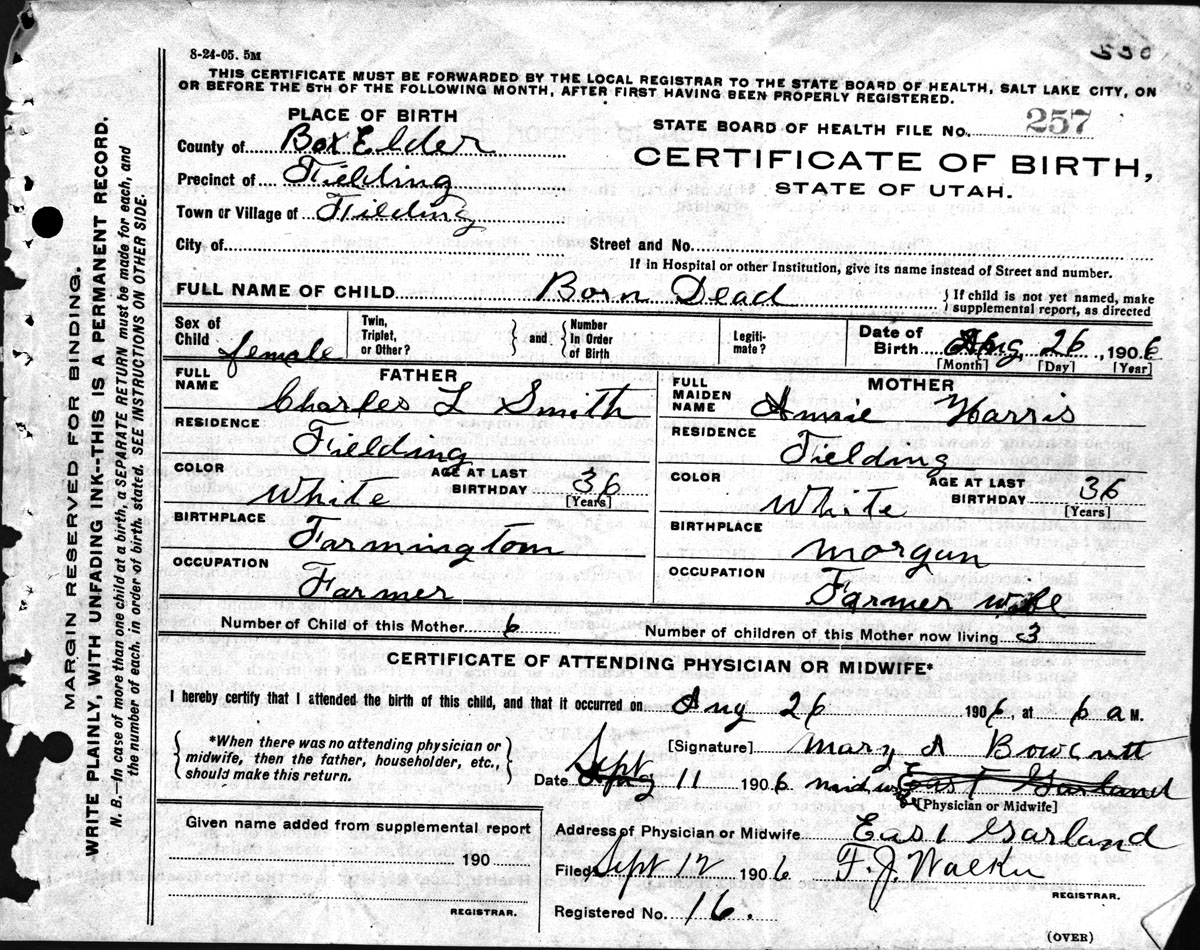 8-24-05. 5M
530
THIS CERTIFICATE MUST BE FORWARDED BY THE LOCAL REGISTRAR TO THE STATE BOARD OF HEALTH, SALT LAKE CITY, ON
OR BEFORE THE 5TH OF THE FOLLOWING MONTH, AFTER FIRST HAVING BEEN PROPERLY REGISTERED.
PLACE OF BIRTH
STATE BOARD OF HEALTH FILE No. 257
County of Box Elder
CERTIFICATE OF BIRTH,
Precinct of Fielding
STATE OF UTAH.
Town or Village of Fielding
City of
Street and No.
If in Hospital or other Institution, give its name instead of Street and number.
FULL NAME OF CHILD Born Dead
} If child is not yet named, make
supplemental report, as directed
Sex of Child female
Twin, Triplet, or Other?
} and { Number In Order of Birth
Legiti-mate?
Date of Birth Aug 26, 1906
[Month] [Day] [Year]
FATHER
FULL NAME Charles L Smith
RESIDENCE Fielding
COLOR White
AGE AT LAST BIRTHDAY 36
[Years]
BIRTHPLACE Farmington
OCCUPATION Farmer
MOTHER
FULL MAIDEN NAME Annie Harris
RESIDENCE Fielding
COLOR White
AGE AT LAST BIRTHDAY 36
[Years]
BIRTHPLACE Morgan
OCCUPATION Farmer wife
Number of Child of this Mother 6
Number of children of this Mother now living 3
CERTIFICATE OF ATTENDING PHYSICIAN OR MIDWIFE*
I hereby certify that I attended the birth of this child, and that it occurred on Aug 26 1906, at 6 a M.
{ *When there was no attending physician or
midwife, then the father, householder, etc.,
should make this return. }
[Signature] Mary A Bowcutt
Date Sept 11 1906 midwife East Garland
[Physician or Midwife]
Given name added from supplemental report
190
REGISTRAR.
Address of Physician or Midwife East Garland
Filed Sept 12 1906 F. J. Walker
REGISTRAR.
Registered No. 16.
(OVER)
MARGIN RESERVED FOR BINDING.
WRITE PLAINLY, WITH UNFADING INK--THIS IS A PERMANENT RECORD.
N. B.—In case of more than one child at a birth, a SEPARATE RETURN must be made for each, and
the number of each, in order of birth, stated. SEE INSTRUCTIONS ON OTHER SIDE.